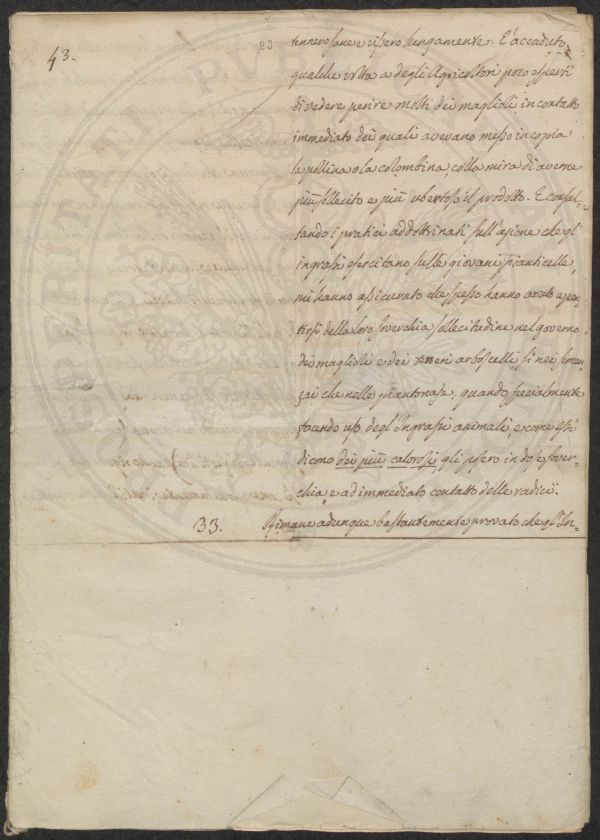 43.
23
tennero sane e vissero lungamente. È accaduto
qualche volta a degli Agricoltori poco esperti
di vedere perire molti dei maglioli, in contatto
immediato dei quali avevano messo in copia
la pollina o la colombina, colla mira di averne
più sollecito e più ubertoso il prodotto. E consul-
tando i pratici addottrinati sull'azione che gl'
ingrassi esercitano sulle giovani pianticelle,
mi hanno assicurato che spesso hanno avuto a pen-
tirsi della loro soverchia sollecitudine nel governo
dei maglioli e dei teneri arboscelli, sì nei
che nelle piantonaje, quando specialmente
facendo uso degl'Ingrassi animali, e come essi
dicono dei più calorosi gli usero in dose sover-
chia, e ad immediato contatto delle radici.
33. Rimane adunque bastantemente provato che gl'In-